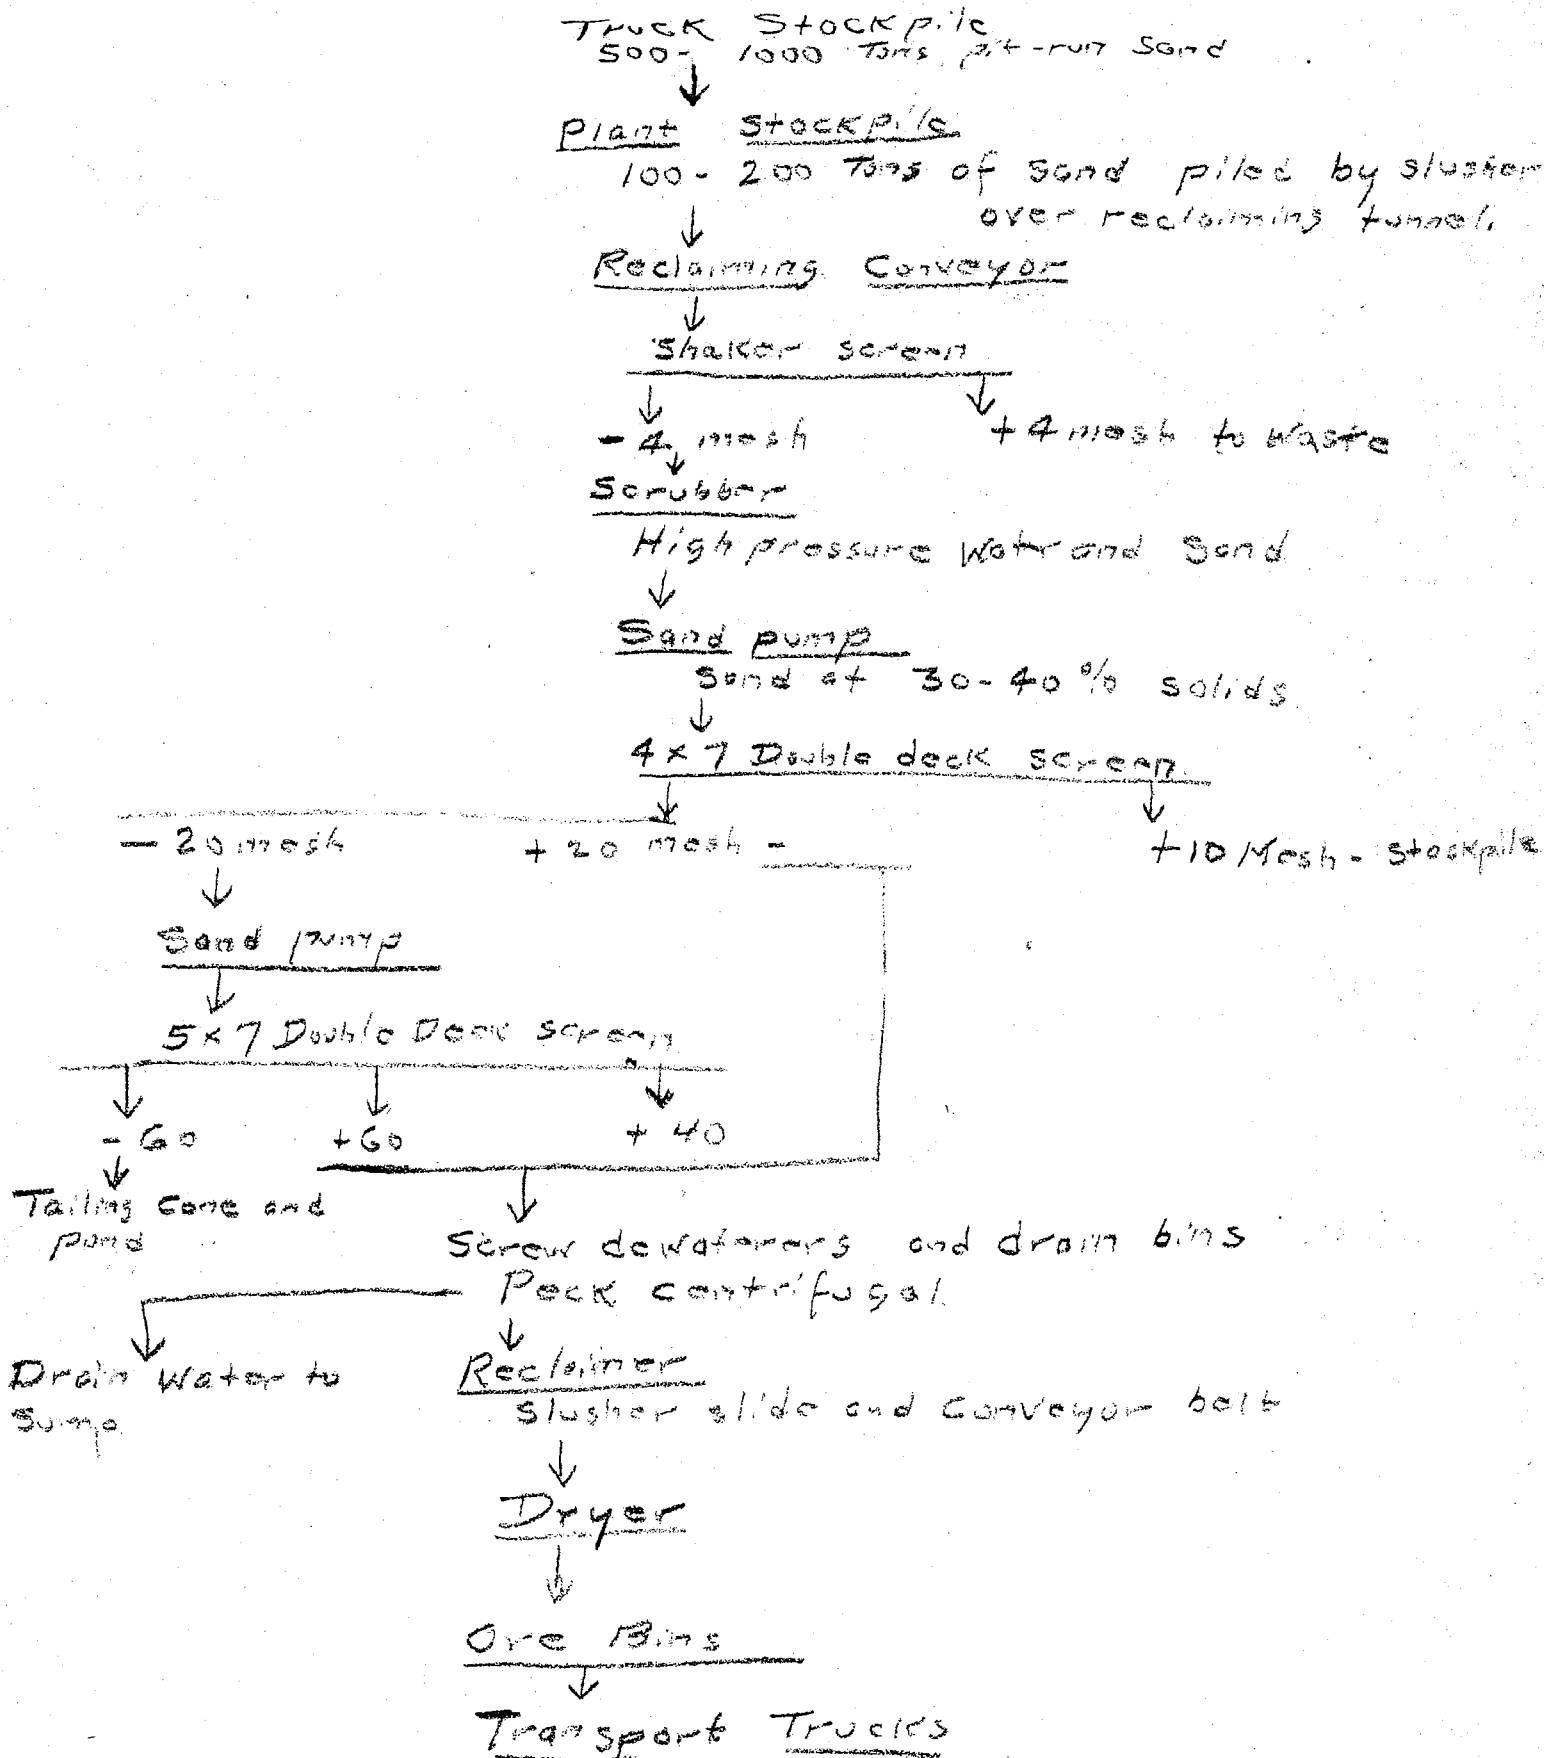 Truck Stockpile
500- 1000 Tons pit-run Sand
Plant Stockpile
100- 200 Tons of sand piled by slusher
over reclaiming tunnel.
Reclaiming Conveyor
Shaker screen
-4 mesh
+4 mesh to Waste
Scrubber
High pressure Watr and Sand
Sand pump
Sand at 30-40% solids
4x7 Double deck screen
- 20 mesh
+ 20 mesh -
+10 Mesh - Stockpile
Sand pump
5x7 Double Deck screen
- 60
+60
+ 40
Tailing Cone and
pond
Screw dewaterers and drain bins
Peck centrifugal
Drain Water to
Sump
Reclaimer
Slusher slide and Conveyor belt
Dryer
Ore Bins
Transport Trucks